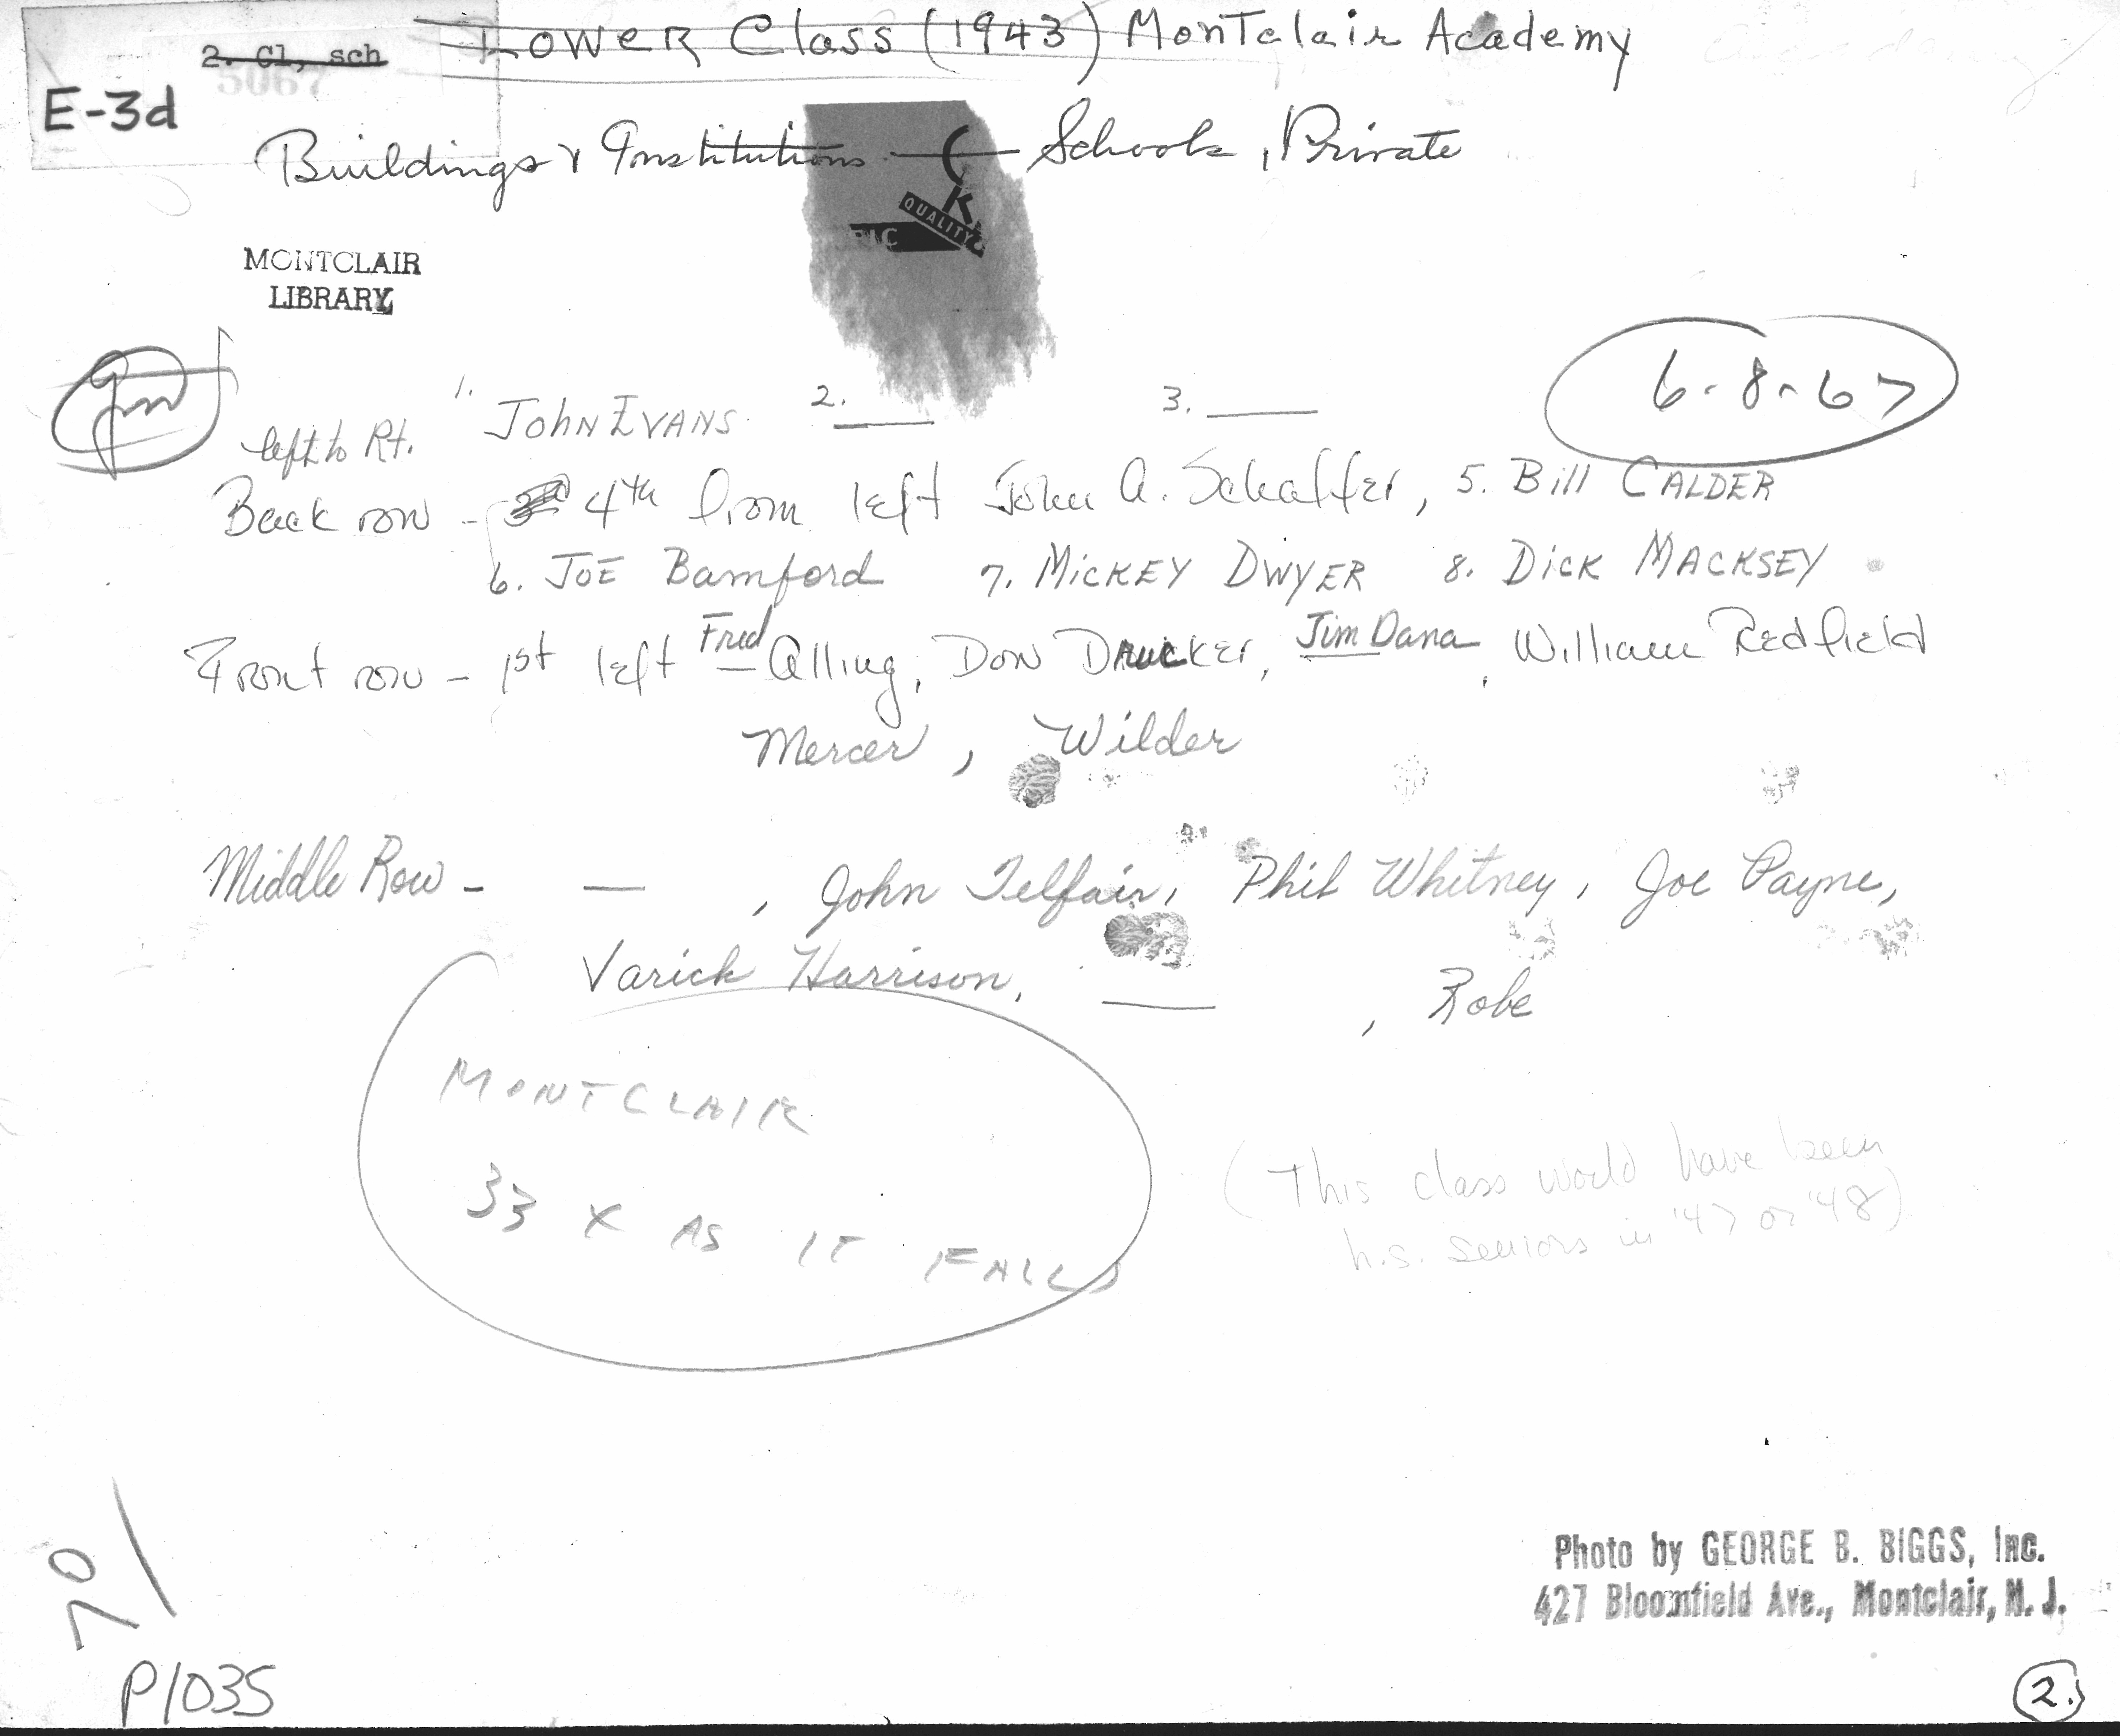 2. Cl, sch
5067
Lower Class (1943) Montclair Academy
E-3d
Buildings & Institutions — Schools, Private
QUALITY
MONTCLAIR
LIBRARY
6-8-67
left to Rt. 1. John Evans 2. ___ 3. ___
Back row - 4th from left John A. Schaffer, 5. Bill CALDER
6. JOE Bamford 7. MICKEY DWYER 8. DICK MACKSEY
Front row - 1st left Fred Alling, Don Drucker, Jim Dana, William Redfield
Mercer, Wilder
Middle Row - — , John Telfair, Phil Whitney, Joe Payne,
Varick Harrison, ___ , Robe
MONTCLAIR
33 X AS IT FALLS
(This class would have been
h.s. seniors in '47 or '48)
70/
P1035
Photo by GEORGE B. BIGGS, Inc.
427 Bloomfield Ave., Montclair, N. J.
2.